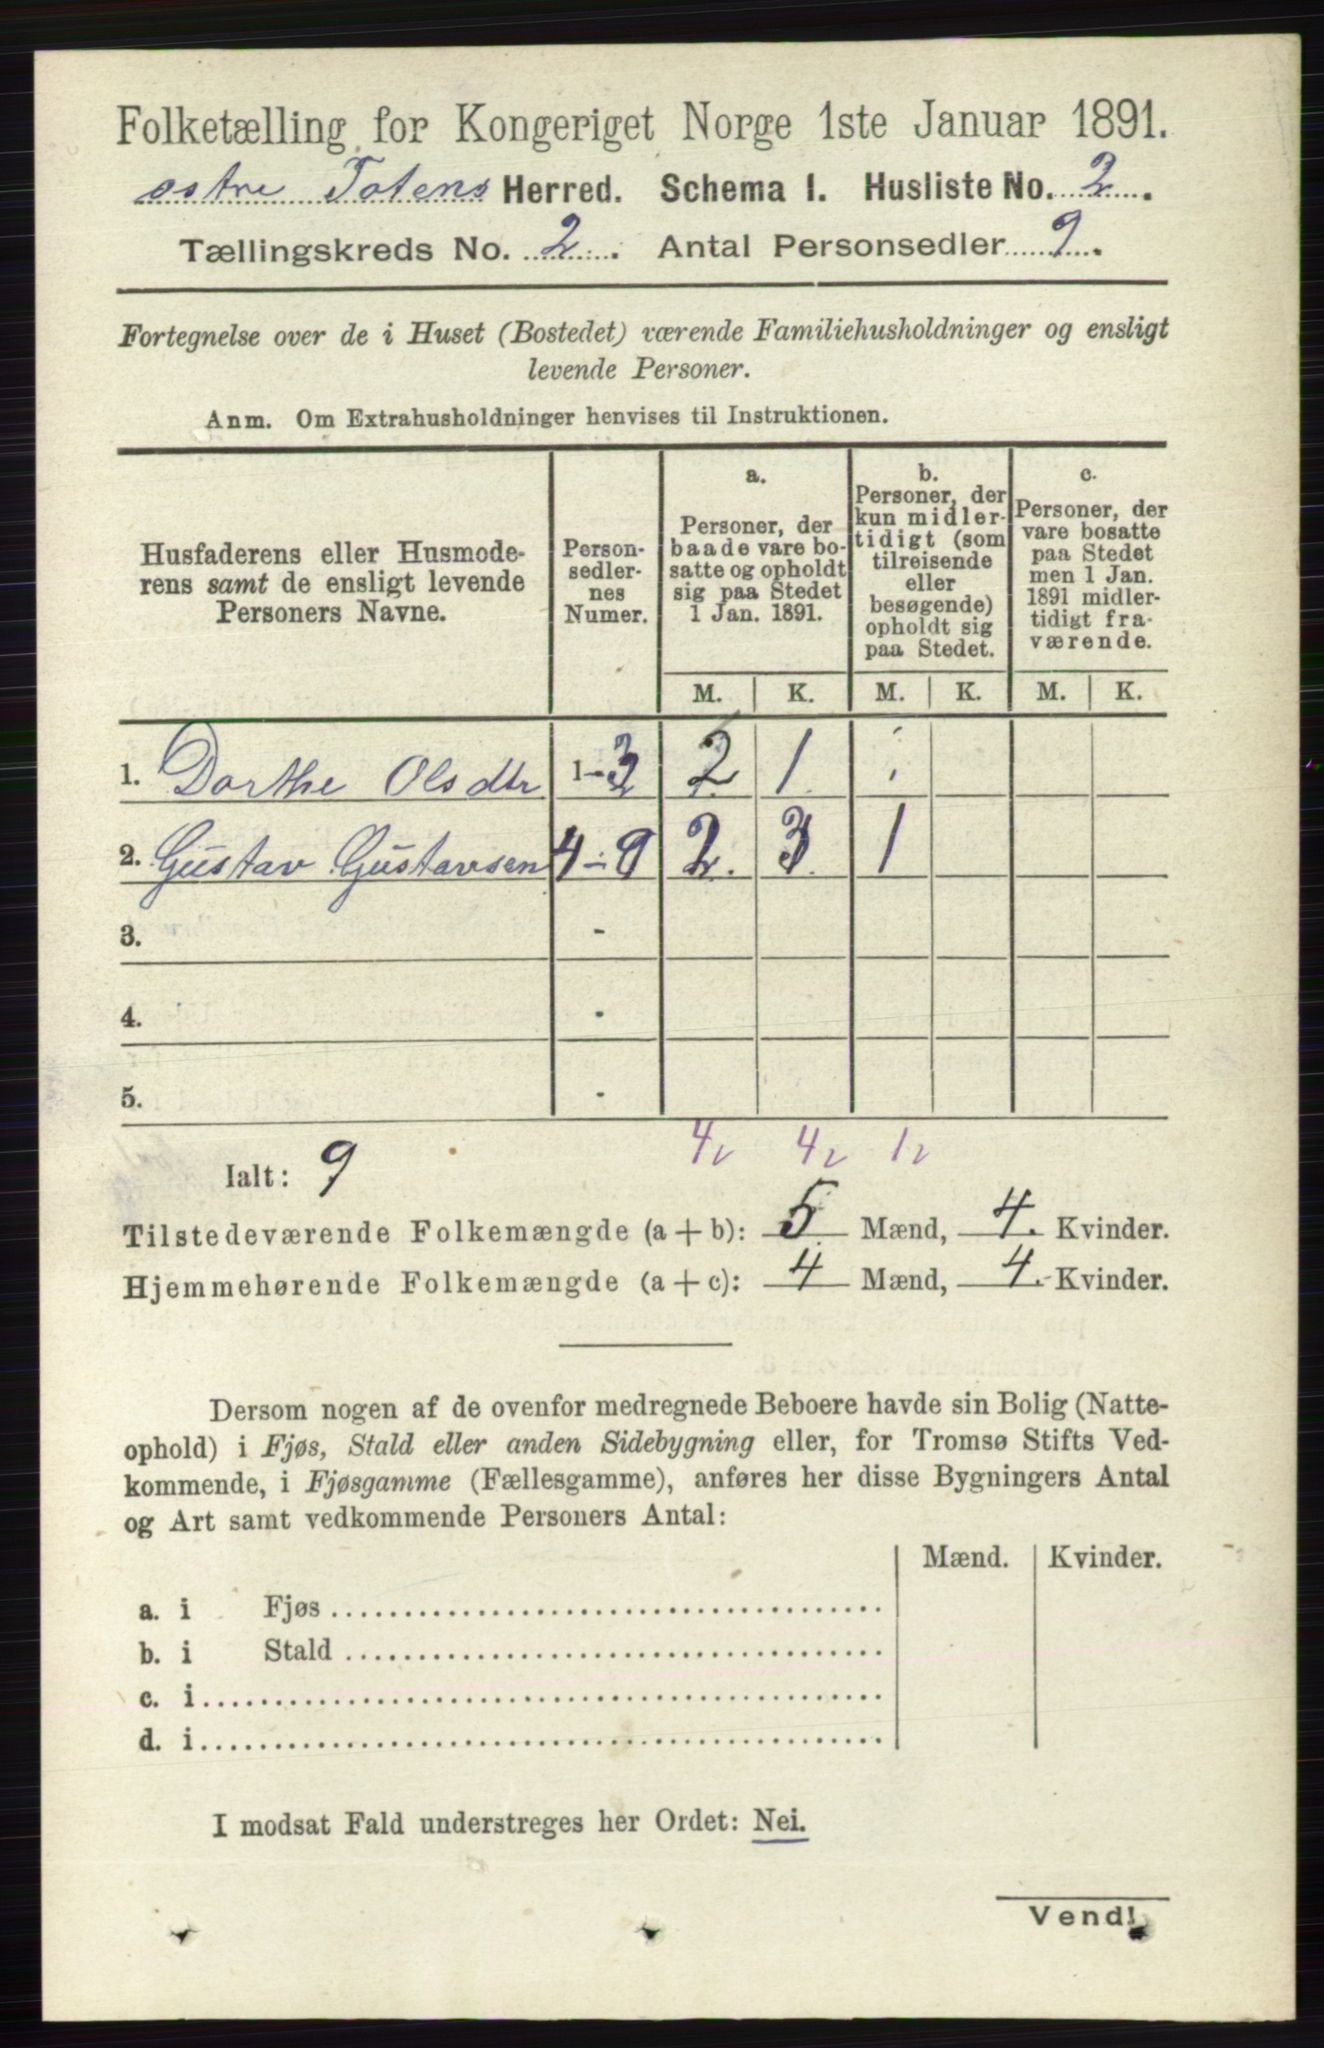 Folketælling for Kongeriget Norge 1ste Januar 1891.
østre Totens Herred. Schema I. Husliste No. 2.
Tællingskreds No. 2. Antal Personsedler 9.
Fortegnelse over de i Huset (Bostedet) værende Familiehusholdninger og ensligt
levende Personer.
Anm. Om Extrahusholdninger henvises til Instruktionen.
Husfaderens eller Husmode-
rens samt de ensligt levende
Personers Navne.
Person-
sedler-
nes
Numer.
a.
Personer, der
baade vare bo-
satte og opholdt
sig paa Stedet
1 Jan. 1891.
b.
Personer, der
kun midler-
tidigt (som
tilreisende
eller
besøgende)
opholdt sig
paa Stedet.
c.
Personer, der
vare bosatte
paa Stedet
men 1 Jan.
1891 midler-
tidigt fra-
værende.
M. K. M. K. M. K.
1. Dorthe Olsdtr 1-3 2 1
2. Gustav Gustavsen 4-9 2. 3. 1
3. -
4. -
5. -
4 4 1
Ialt: 9
Tilstedeværende Folkemængde (a + b): 5 Mænd, 4. Kvinder.
Hjemmehørende Folkemængde (a + c): 4 Mænd, 4. Kvinder.
Dersom nogen af de ovenfor medregnede Beboere havde sin Bolig (Natte-
ophold) i Fjøs, Stald eller anden Sidebygning eller, for Tromsø Stifts Ved-
kommende, i Fjøsgamme (Fællesgamme), anføres her disse Bygningers Antal
og Art samt vedkommende Personers Antal:
Mænd. Kvinder.
a. i Fjøs
b. i Stald
c. i
d. i
I modsat Fald understreges her Ordet: Nei.
Vend!